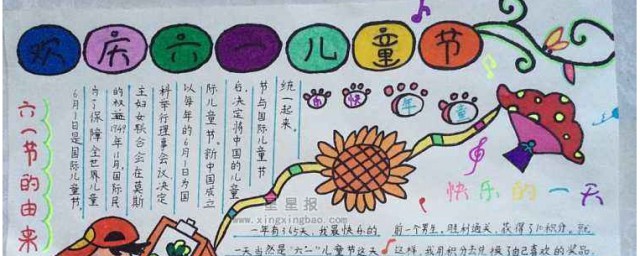 欢庆六一儿童节
六一节的由来
6月1日是国际儿童节
为了保障全世界儿童
的权益1949年11月,国际民
主妇女联合会在莫斯
科举行理事会议,决定
以每年的6月1为国
际儿童节。新中国成立
后,决定将中国的儿童
节与国际儿童节
统一起来。
快 年 童
快乐的一天
星星报
www.xingxingbao.com
一年有365天,我最快乐的
一天当然是“六一”儿童节这天
前一个男生,胜利通关,获得了10积分。就
这样,我用积分去兑换了自己喜欢的奖品。